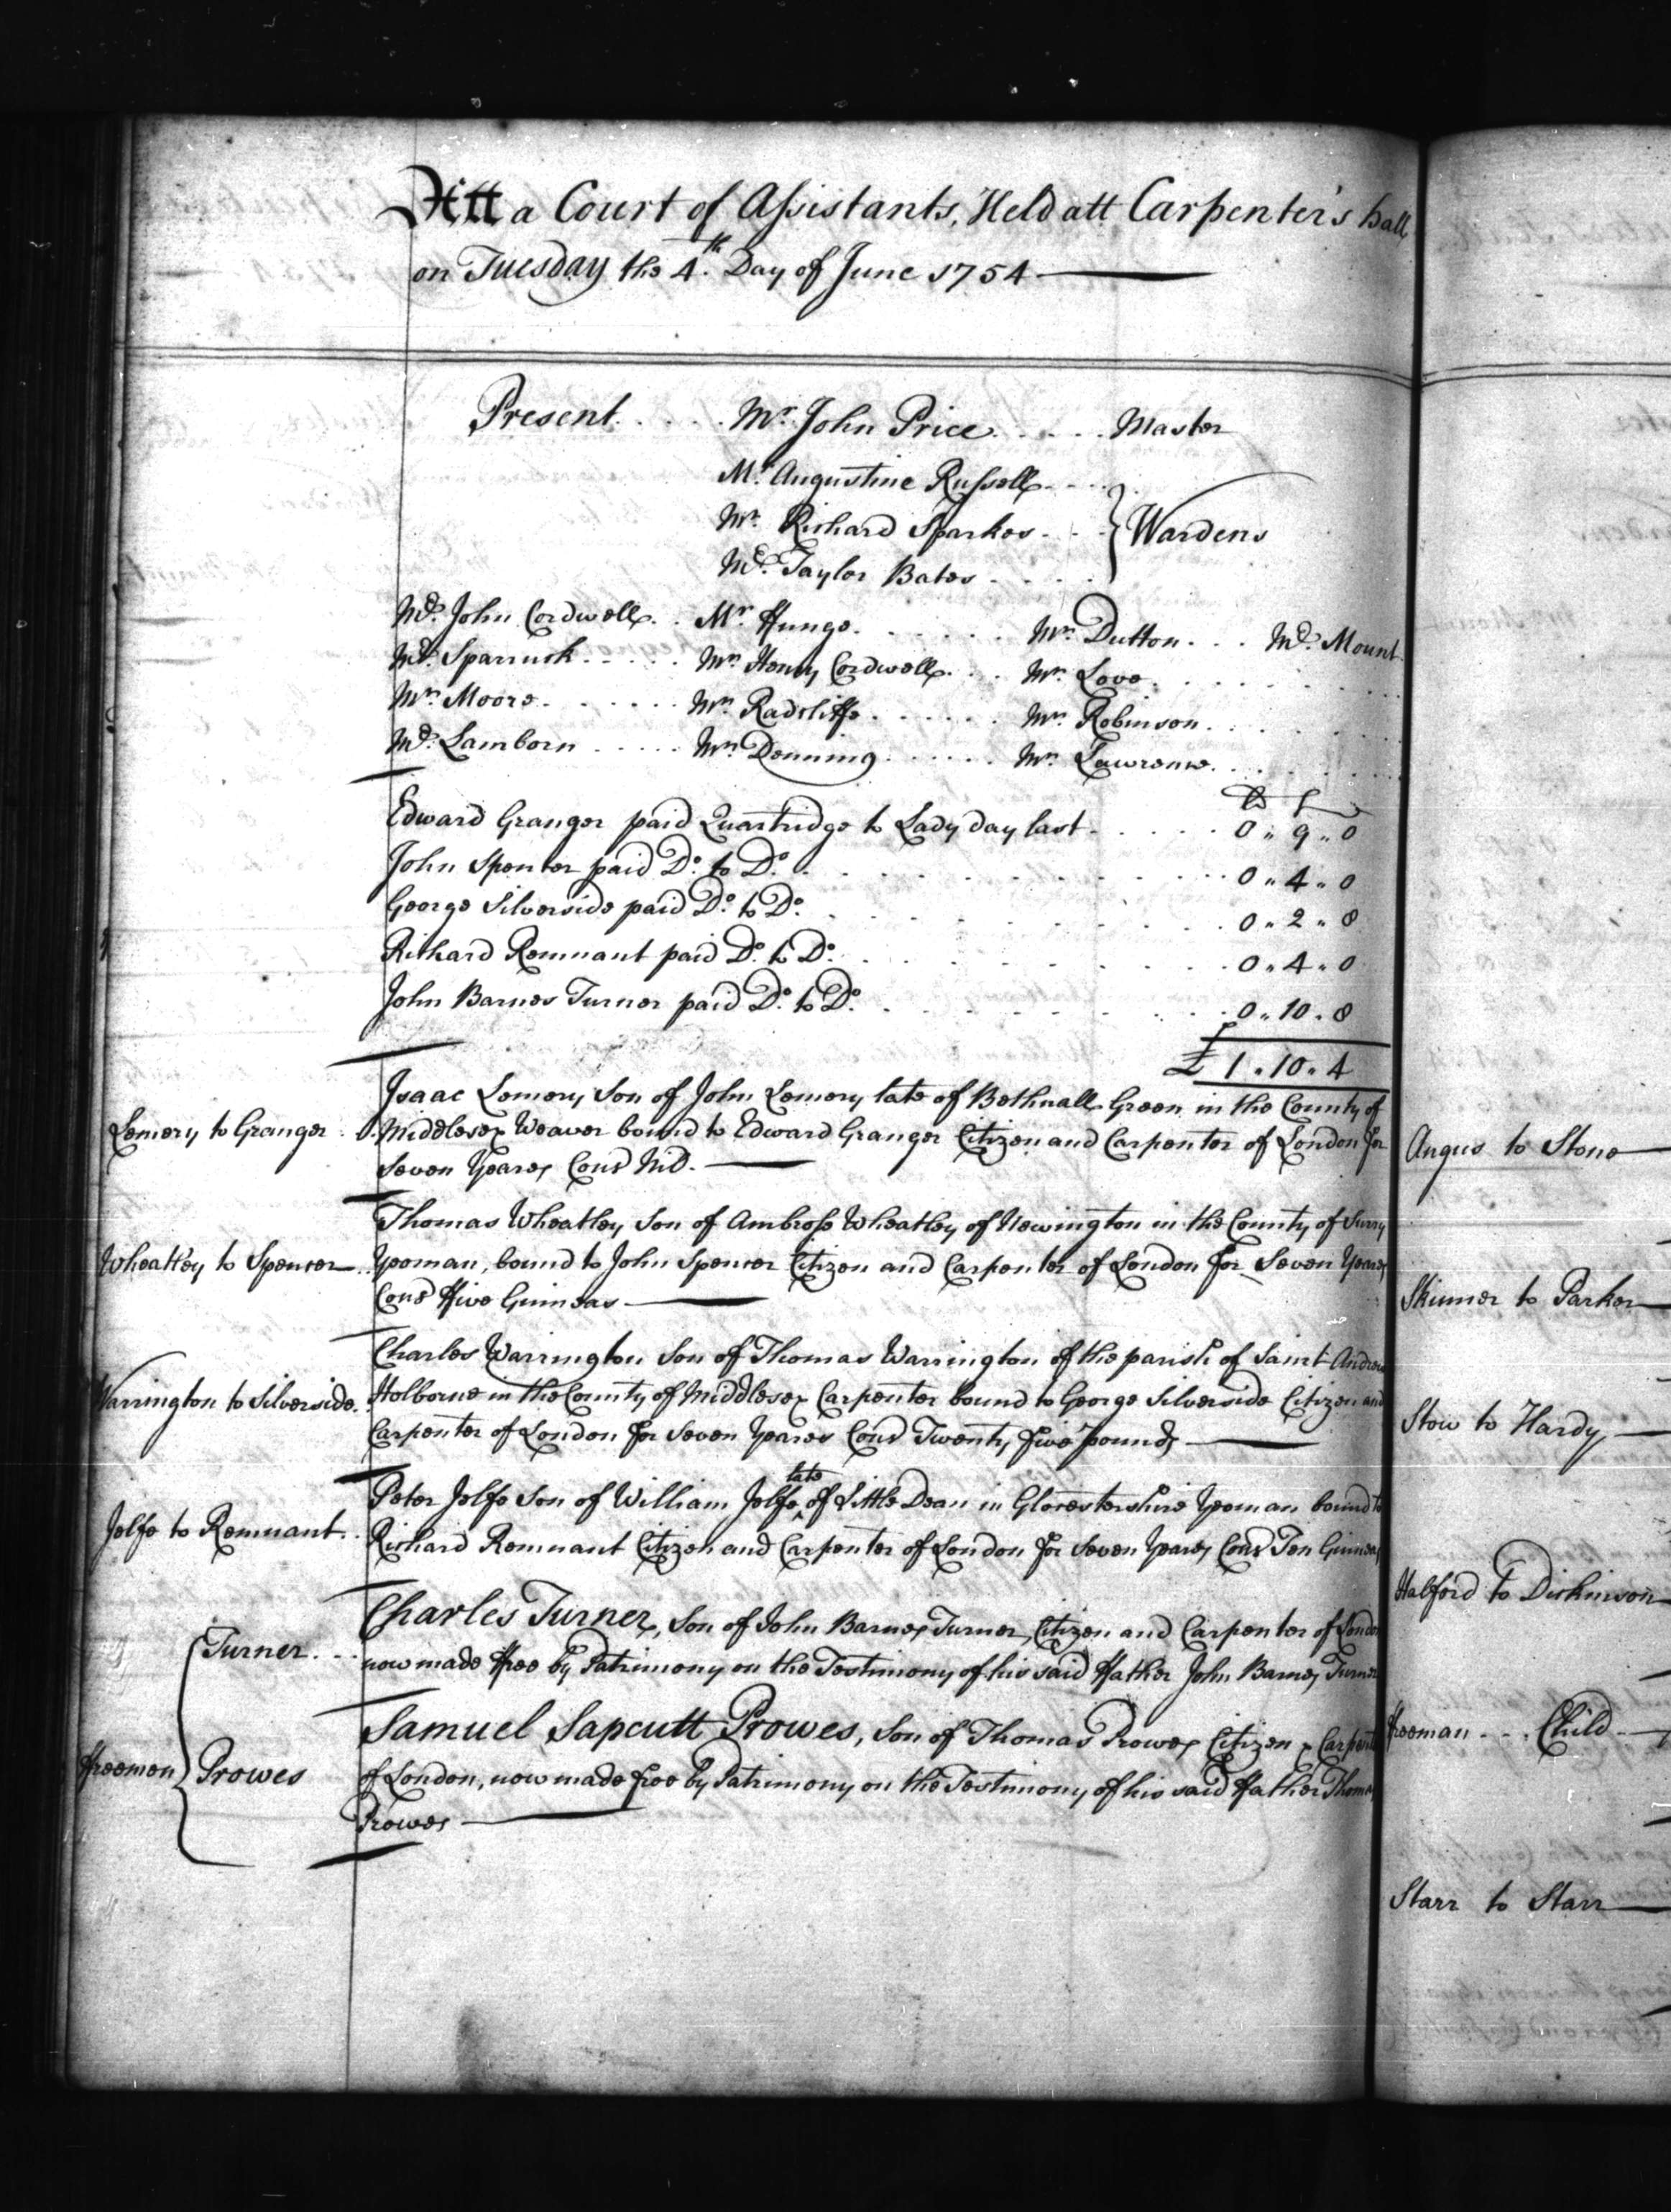 Att a Court of Assistants, Held att Carpenter's hall
on Tuesday the 4.th Day of June 1754
Present . . . . Mr. John Price . . . . . Master
Mr. Augustine Russell . . .
Mr. Richard Sparkes . . . } Wardens
Mr. Taylor Bates . . . .
Mr. John Cordwell . . Mr. Hunge . . . . . . Mr. Dutton . . . Mr. Mount
Mr. Sparruck . . . . . Mr. Henry Cordwell . . . Mr. Love
Mr. Moore . . . . . . Mr. Radcliffe . . . . . . Mr. Robinson
Mr. Lamborn . . . . . Mr. Denning . . . . . . Mr. Lawrence
Edward Granger paid Quartridge to Lady day last . . . . . 0 " 9 " 0
John Spencer paid Do. to Do. . . . 0 " 4 " 0
George Silverside paid Do. to Do. . . . 0 " 2 " 8
Richard Remnant paid Do. to Do. . . . 0 " 4 " 0
John Barnes Turner paid Do. to Do. . . . 0 " 10 " 8
£ 1 " 10 " 4
Isaac Lemery Son of John Lemery late of Bethnall Green in the County of
Lemery to Granger . . Middlesex Weaver bound to Edward Granger Citizen and Carpenter of London for
Seven Years Cons Nil.
Thomas Wheatley Son of Ambrose Wheatley of Newington in the County of Surry
Wheatley to Spencer Yeoman, bound to John Spencer Citizen and Carpenter of London for Seven Years
Cons ffive Guineas
Charles Warrington Son of Thomas Warrington of the parish of Saint Andrew
Warrington to Silverside. Holborne in the County of Middlesex Carpenter bound to George Silverside Citizen and
Carpenter of London for Seven Years Cons Twenty five pounds
late
Peter Jelfe Son of William Jelfe ^ of Little Dean in Glocestershire Yeoman bound to
Jelfe to Remnant. . Richard Remnant Citizen and Carpenter of London for Seven Years Cons Ten Guineas
Charles Turner, Son of John Barnes Turner, Citizen and Carpenter of London
Turner . . . now made ffree by Patrimony on the Testimony of his said ffather John Barnes Turner
Samuel Sapcutt Prowes, Son of Thomas Prowes Citizen & Carpenter
ffreemen { Prowes of London, now made free by Patrimony on the Testimony of his said ffather Thomas
Prowes
Angus to Stone
Skinner to Parker
Stow to Hardy
Halford to Dickinson
ffreeman . . . Child
Starr to Starr